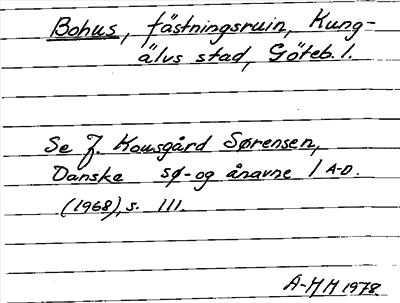 Bohus, fästningsruin, Kung-
älvs stad, Göteb. l.
Se J. Kousgård Sørensen,
Danske sø- og ånavne 1 A-D.
(1968), s. 111.
A-MH 1978